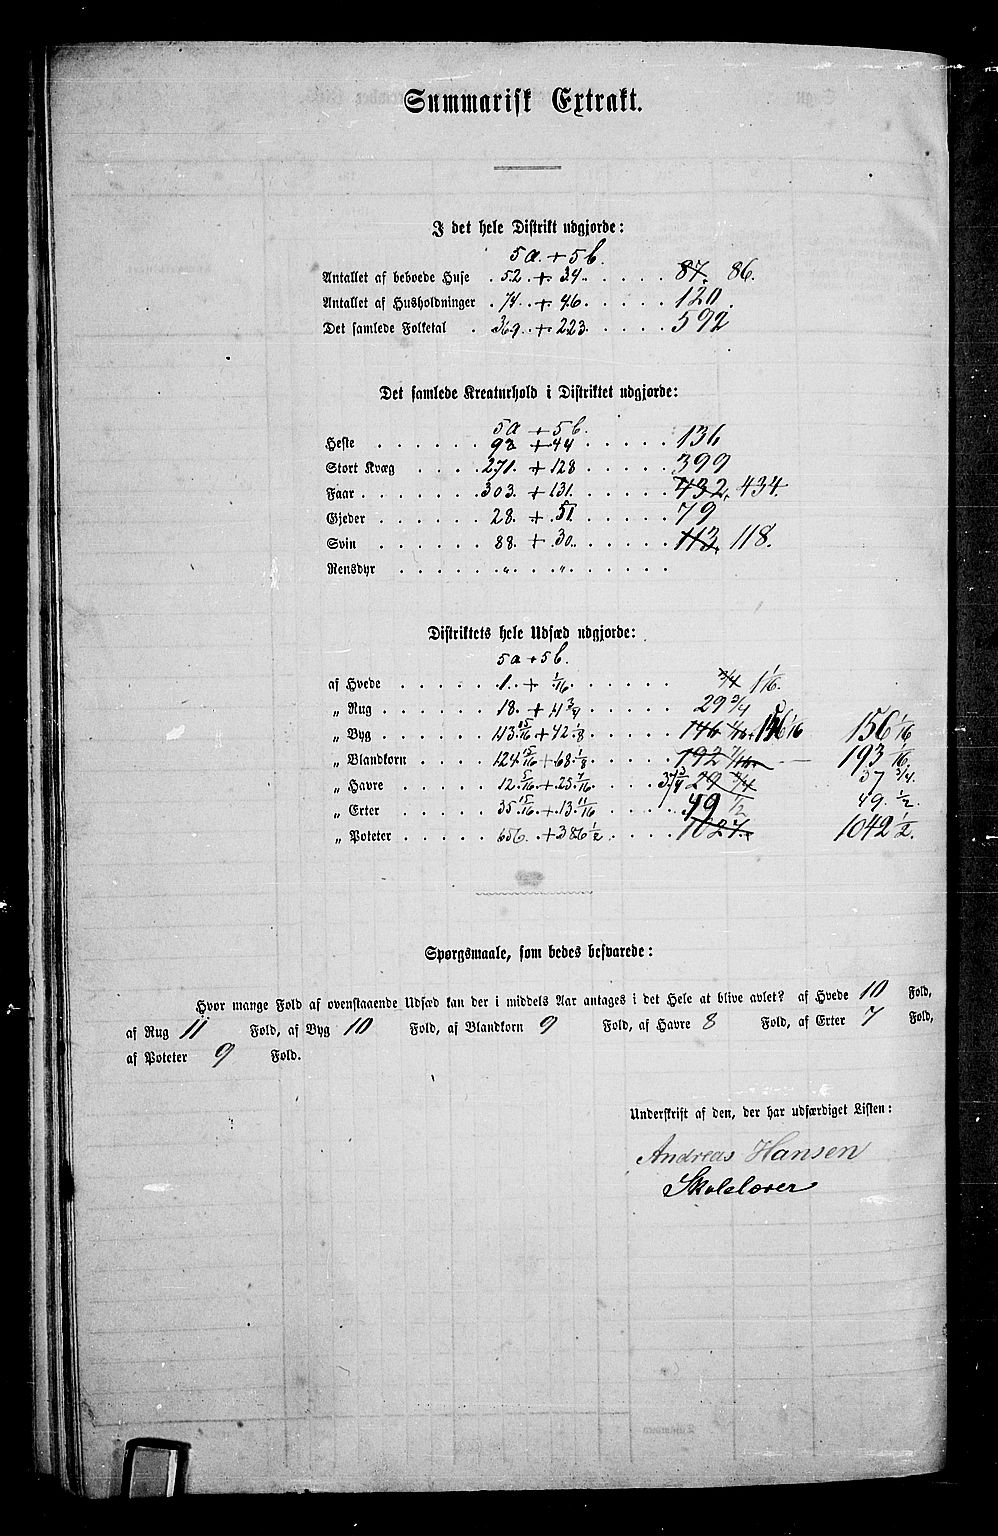 Summarisk Extrakt.
I det hele Distrikt udgjorde:
5a. + 5b.
Antallet af beboede Huse . 52 . + 34 . . . . . 87. 86.
Antallet af Husholdninger . 74 . + 46 . . . . . 120.
Det samlede Folketal . 369 . + 223 . . . . . 592
Det samlede Kreaturhold i Distriktet udgjorde:
5a + 5b.
Heste . . . . . 92 + 44 . . . . . 136
Stort Kvæg . . . . 271. + 128 . . . . . 399
Faar . . . . . 303. + 131. . . . . 432, 434.
Gjeder . . . . . 28. + 51 . . . . . 79
Svin . . . . . 88. + 30. . . . . 113, 118.
Rensdyr . . . . . „ . . „ . . . . .
Distriktets hele Udsæd udgjorde:
5a + 5b.
af Hvede . . . . . 1. + 1/16. . . . . 3/4 1 1/16.
„ Rug . . . . . 18. + 11 3/4 . . . . . 29 3/4
„ Byg . . . . . 113 15/16 + 42 1/8 . . . . . 146 1/16 156 1/16 156 1/16
„ Blandkorn . . . . 124 15/16 + 68 1/8 . . . . . 192 1/16 193 1/16.
„ Havre . . . . . 12 5/16 + 25 7/16 . . . . . 37 3/4 29 3/4 37 3/4.
„ Erter . . . . . 35 15/16 + 13 11/16 . . . . . 49 1/2 49. 1/2.
„ Poteter . . . . . 656. + 386 1/2 . . . . . 1027. 1042 1/2.
Spørgsmaale, som bedes besvarede:
Hvor mange Fold af ovenstaaende Udsæd kan der i middels Aar antages i det Hele at blive avlet? af Hvede 10 Fold,
af Rug 11 Fold, af Byg 10 Fold, af Blandkorn 9 Fold, af Havre 8 Fold, af Erter 7 Fold,
af Poteter 9 Fold.
Underskrift af den, der har udfærdiget Listen:
Andreas Hansen
Skolelærer